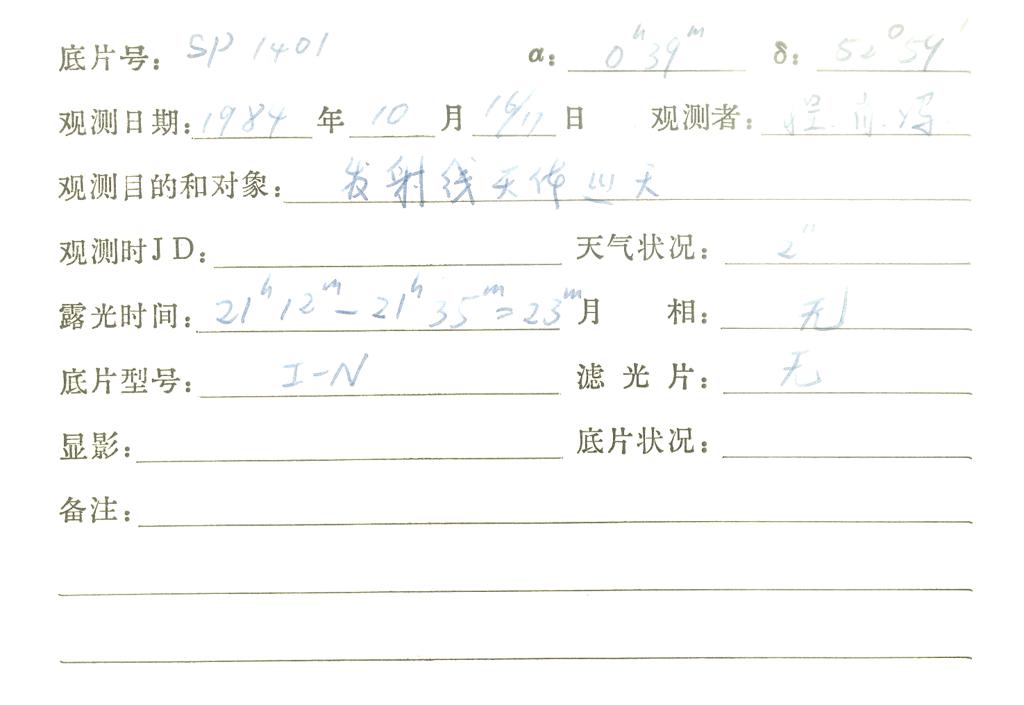 底片号: SP 1401 α: 0ʰ39ᵐ δ: 52°59′
观测日期: 1984 年 10 月 16/17 日 观测者: 程. 肖. 冯.
观测目的和对象: 发射线天体巡天
观测时JD: 天气状况: 2″
露光时间: 21ʰ12ᵐ-21ʰ35ᵐ=23ᵐ 月 相: 无
底片型号: I-N 滤光片: 无
显影: 底片状况:
备注: